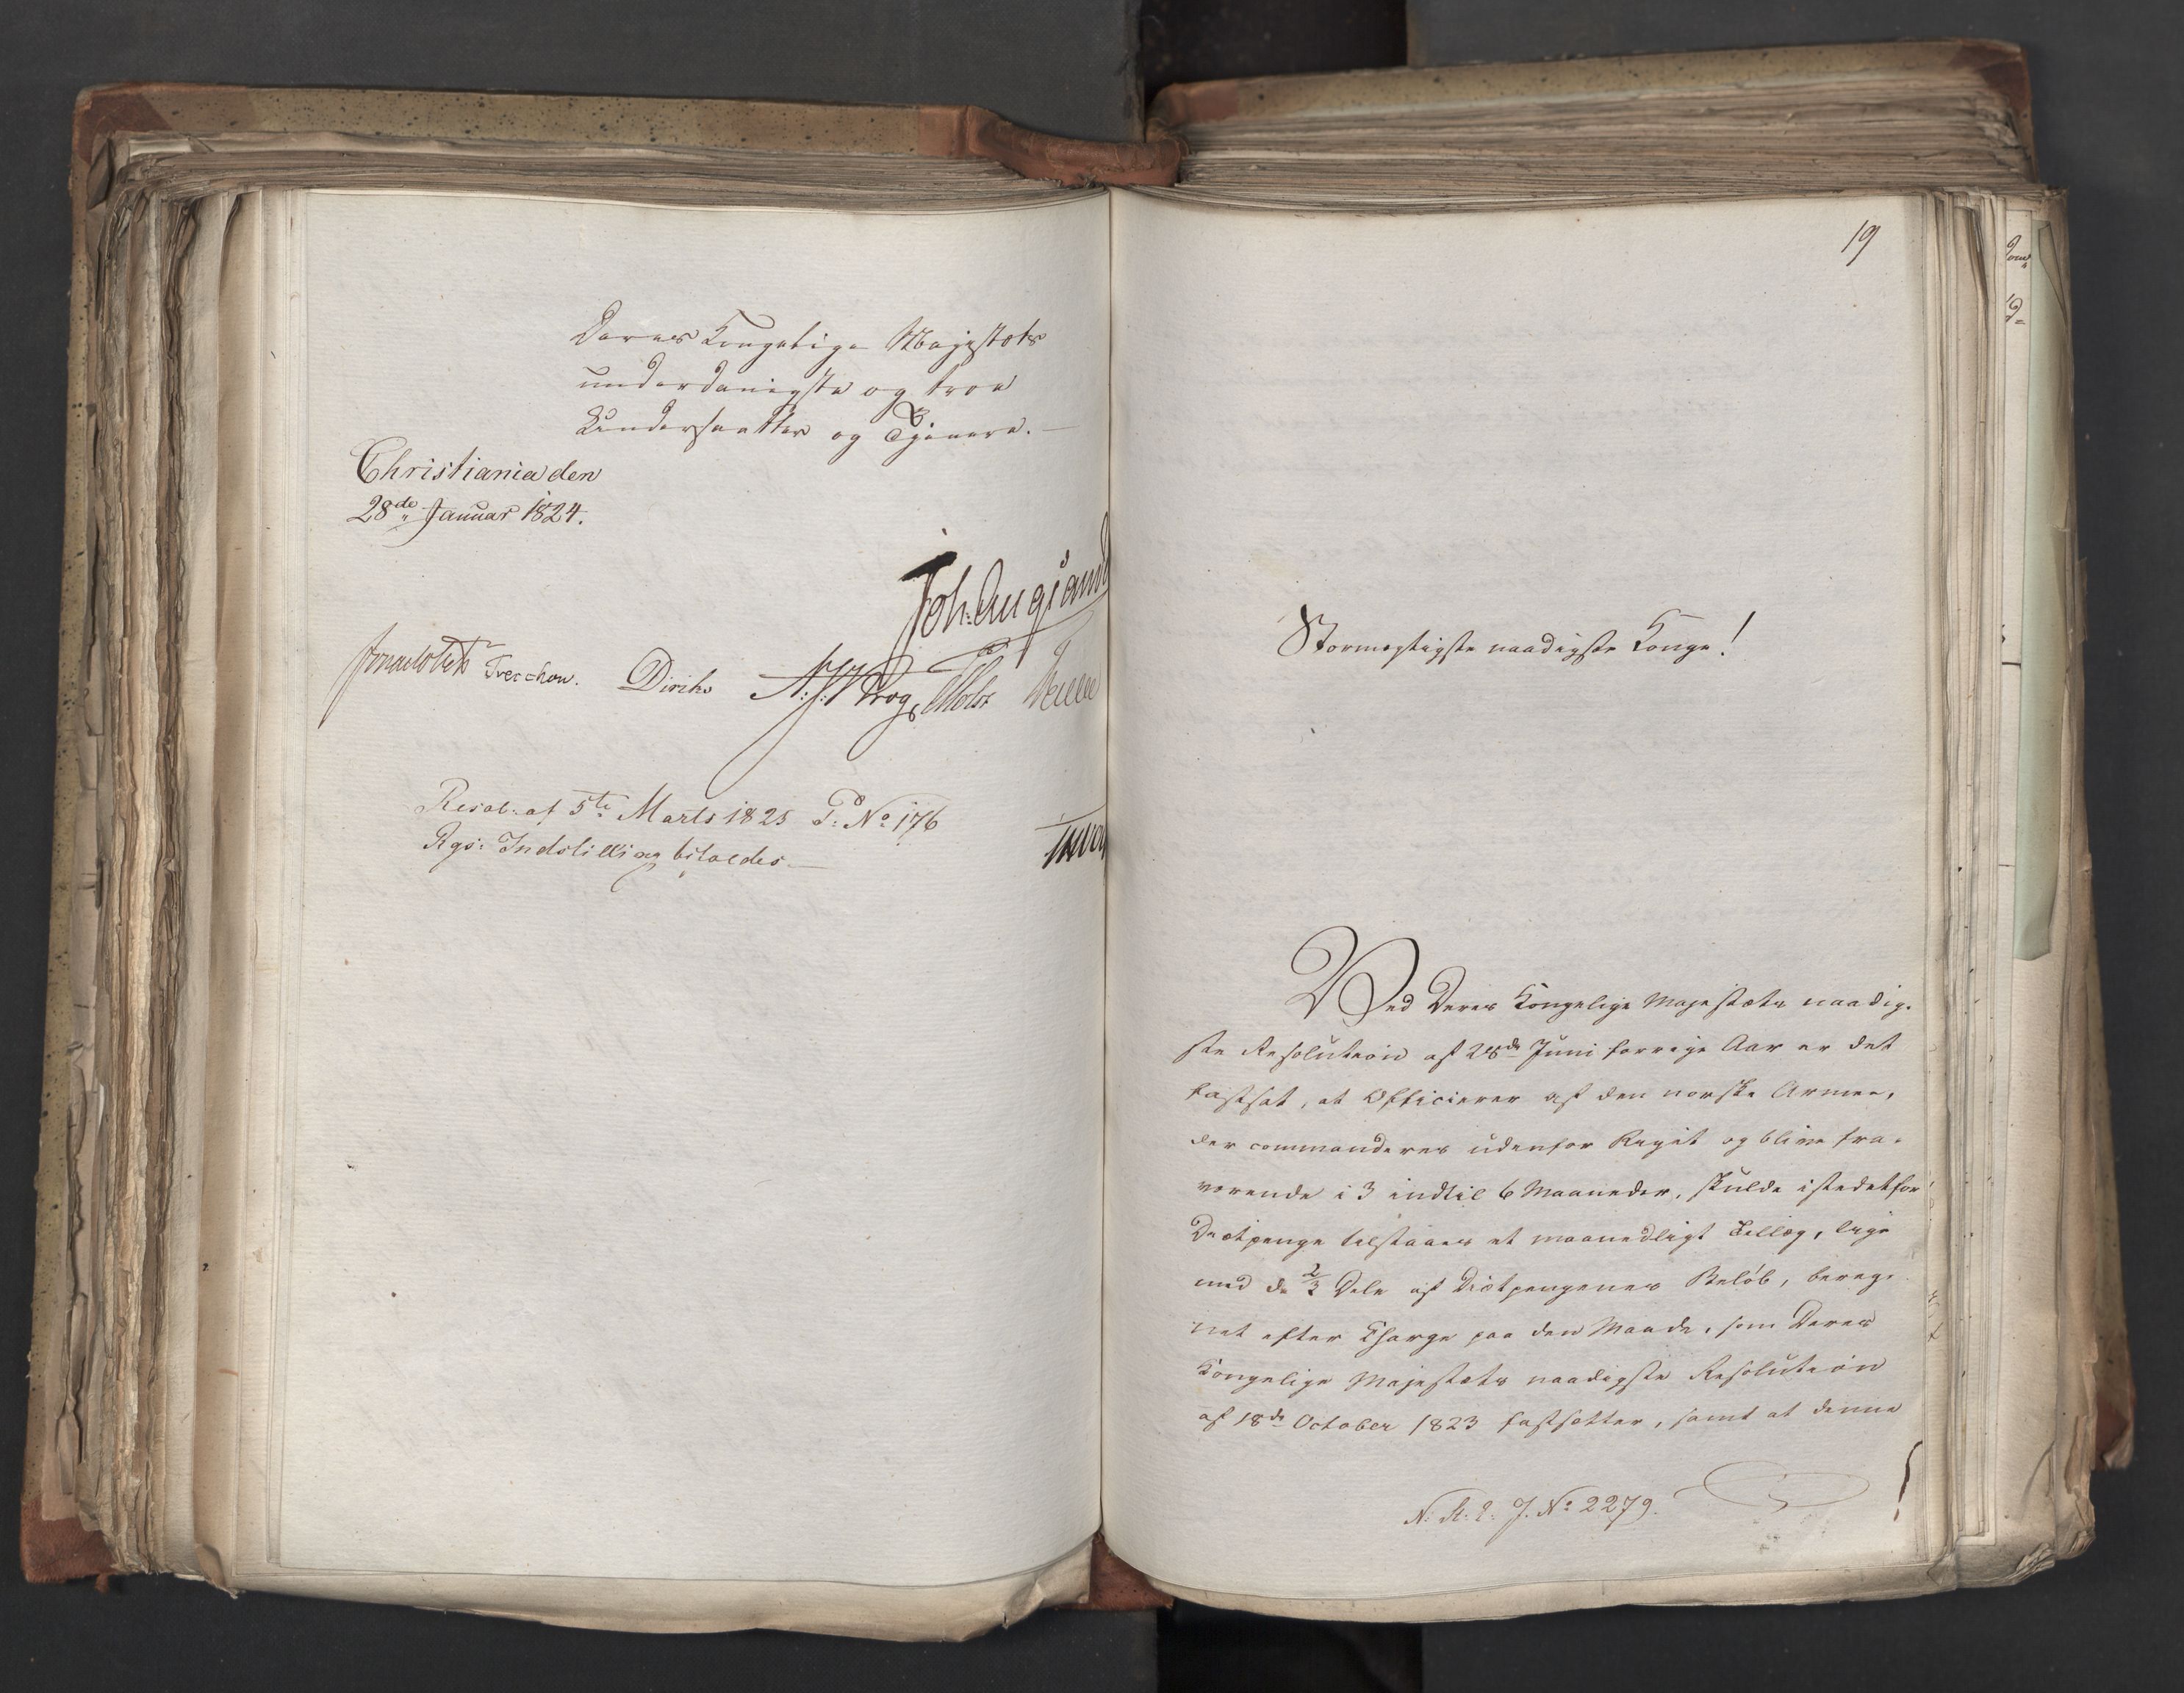 Deres Kongelige Majestæts
underdanigste og troe
Undersaatter og Tjenere.
Christiania den
28de Januar 1824.
Joh: Aug: Sand
Jonas Collett Treschow. Diriks A:f:W Krog, Holst
Resol: af 5te Marts 1825 P: No 176
Rgs: Indstilling bifaldes
19
Stormægtigste naadigste Konge!
Ved Deres Kongelige Majestæts naadig-
ste Resolution af 28de Juni forrige Aar er det
fastsat, at Officierer af den norske Armee,
der commanderes udenfor Riget og blive fra-
værende i 3 indtil 6 Maaneder, skulde istedetfor
Diætpenge tilstaaes et maanedligt Tillæg, lige
med de 2/3 Dele af Diætpengenes Beløb, bereg-
net efter Charge paa den Maade, som Deres
Kongelige Majestæts naadigste Resolution
af 18de October 1823 fastsætter, samt at denne
N: R. J. No 2279.